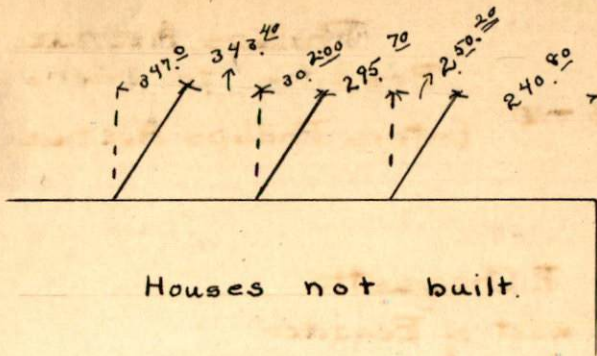 347.0 343.40 30.2.00 295.70 2.50.20 240.80
Houses not built.